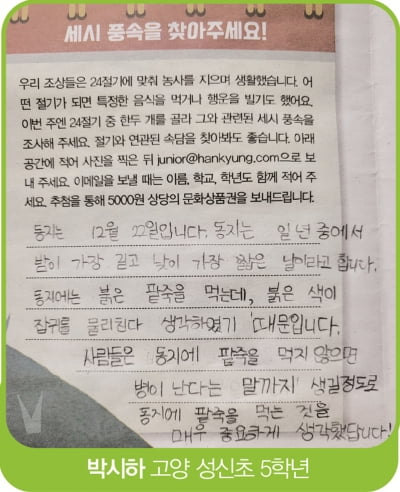 세시 풍속을 찾아주세요!
우리 조상들은 24절기에 맞춰 농사를 지으며 생활했습니다. 어
떤 절기가 되면 특정한 음식을 먹거나 행운을 빌기도 했어요.
이번 주엔 24절기 중 한두 개를 골라 그와 관련된 세시 풍속을
조사해 주세요. 절기와 연관된 속담을 찾아봐도 좋습니다. 아래
공간에 적어 사진을 찍은 뒤 junior@hankyung.com으로 보
내 주세요. 이메일을 보낼 때는 이름, 학교, 학년도 함께 적어 주
세요. 추첨을 통해 5000원 상당의 문화상품권을 보내드립니다.
동지는 12월 22일입니다. 동지는 일 년 중에서
밤이 가장 길고 낮이 가장 짧은 날이라고 합니다.
동지에는 붉은 팥죽을 먹는데, 붉은 색이
잡귀를 물리친다 생각하였기 때문입니다.
사람들은 동지에 팥죽을 먹지 않으면
병이 난다는 말까지 생길정도로
동지에 팥죽을 먹는 것을
매우 중요하게 생각했답니다!
박시하 고양 성신초 5학년